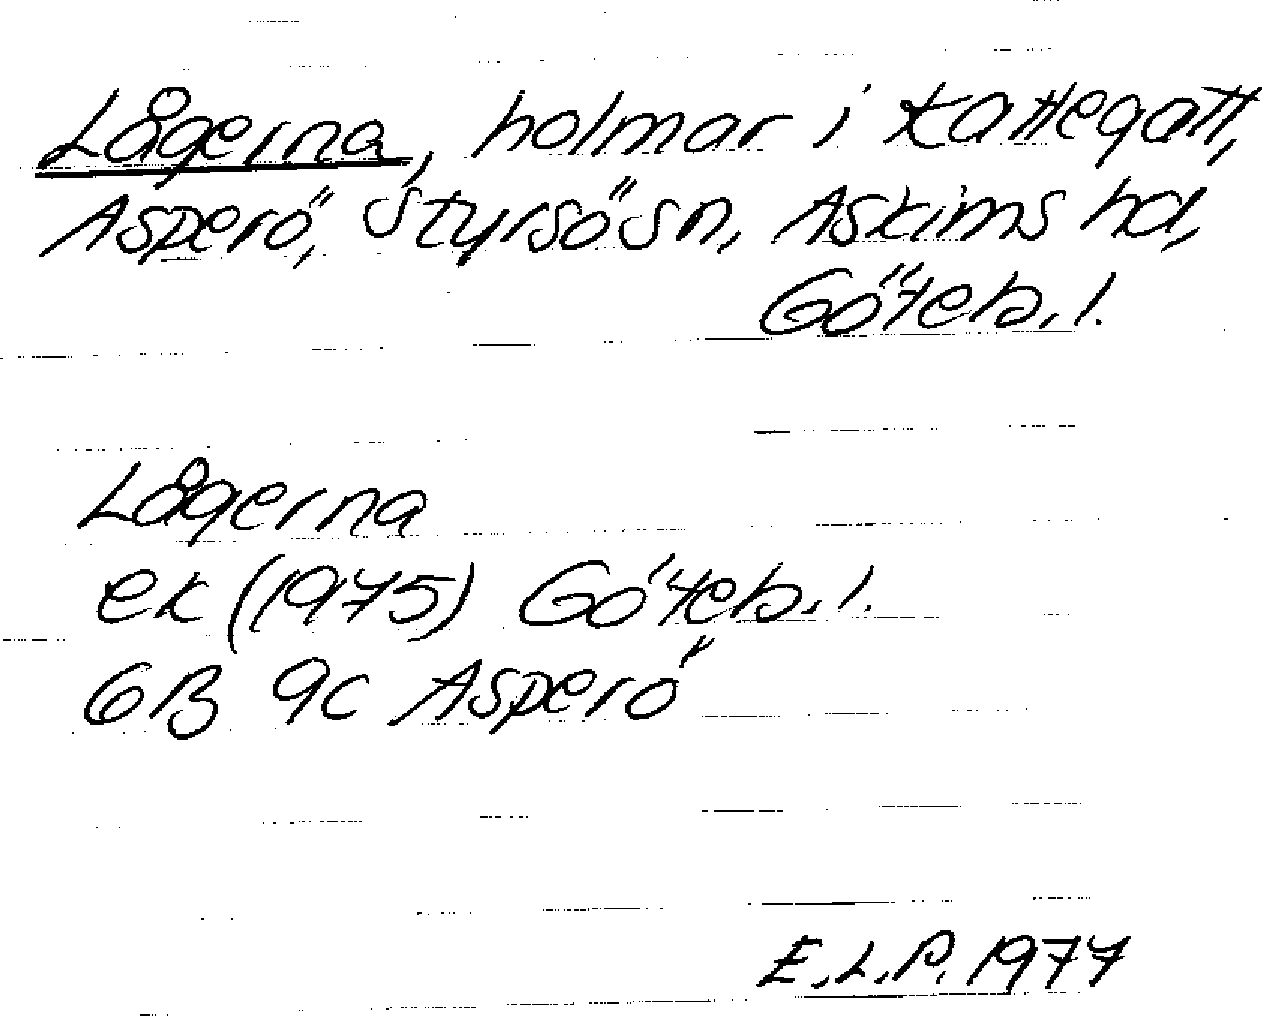 Lågerna, holmar i Kattegatt,
Asperö, Styrsö sn, Askims hd,
Göteb. l.
Lågerna
ek (1975) Göteb. l.
6B 9c Asperö
E.L.P. 1977